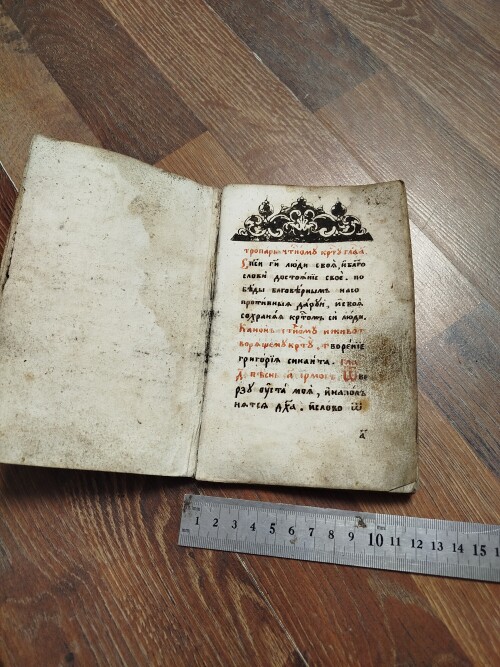 тропарь чⷭ҇тномꙋ крⷭ҇тꙋ гла́ а҃.
Спⷭ҇и гⷭ҇и люди своѧ̀, и҆ бл҃го
слови достоѧнїе своѐ. по
бѣды благовѣрнымъ на со
противныѧ дарꙋи, и҆своѧ̀
сохранѧѧ крⷭ҇томъ сѝ люди.
Канонъ чⷭ҇тномꙋ и живот
ворѧщемꙋ крⷭ҇тꙋ, творенїе
григорїѧ синаита. гла́
д҃. пѣснь а҃. ірмосъ. Ѿве
рзꙋ ꙋ҆ста̀ моѧ̀, и҆наполъ
нѧтсѧ дх҃а. и҆слово ѿ
а҃
1 2 3 4 5 6 7 8 9 10 11 12 13 14 15